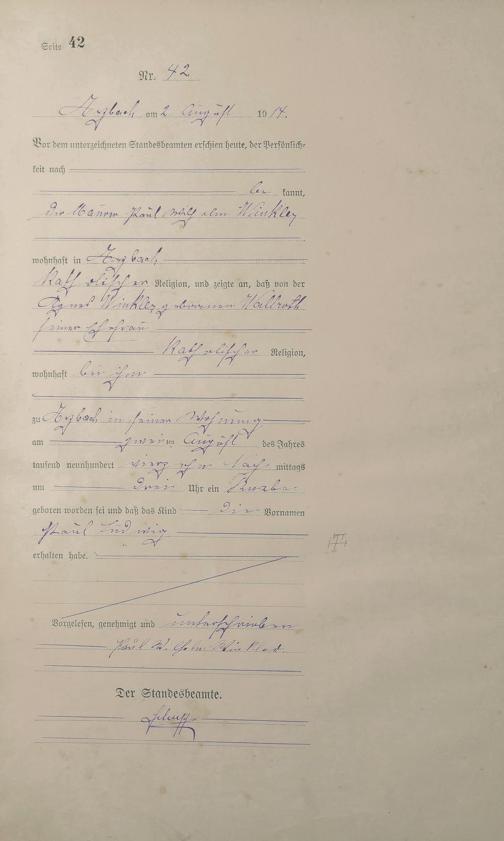 Seite 42
Nr. 42
Arzbach am 2 August 1914.
Vor dem unterzeichneten Standesbeamten erschien heute, der Persönlich-
keit nach
be kannt,
der Maurer Paul Wilhelm Winkler
wohnhaft in Arzbach
Katholischer Religion, und zeigte an, daß von der
Agnes Winkler geborenen Wallroth
seiner Ehefrau
Katholischer Religion,
wohnhaft bei ihm
zu Arzbach in seiner Wohnung
am zweiten August des Jahres
tausend neunhundert vierzehn Nach mittags
um drei Uhr ein Knabe
geboren worden sei und daß das Kind die Vornamen
Paul Ludwig
erhalten habe.
Vorgelesen, genehmigt und unterschrieben
Paul Wilhelm Winkler
Der Standesbeamte.